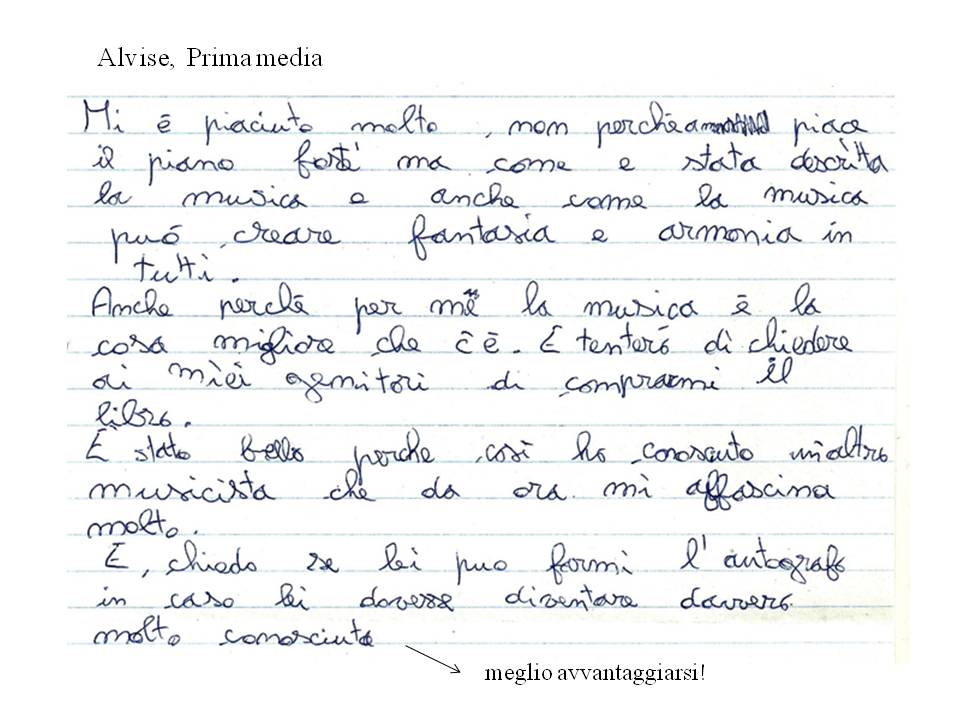 Alvise, Prima media
Mi è piaciuto molto, non perchè a piace
il piano forte ma come e stata descritta
la musica e anche come la musica
può creare fantasia e armonia in
tutti.
Anche perchè per me la musica è la
cosa migliore che c'è. E tenterò di chiedere
ai miei genitori di comprarmi il
libro.
È stato bello perche così ho conosciuto un'altro
musicista che da ora mi affascina
molto.
E, chiedo se lei puo farmi l'autografo
in caso lei dovesse diventare davvero
molto conosciuta
meglio avvantaggiarsi!